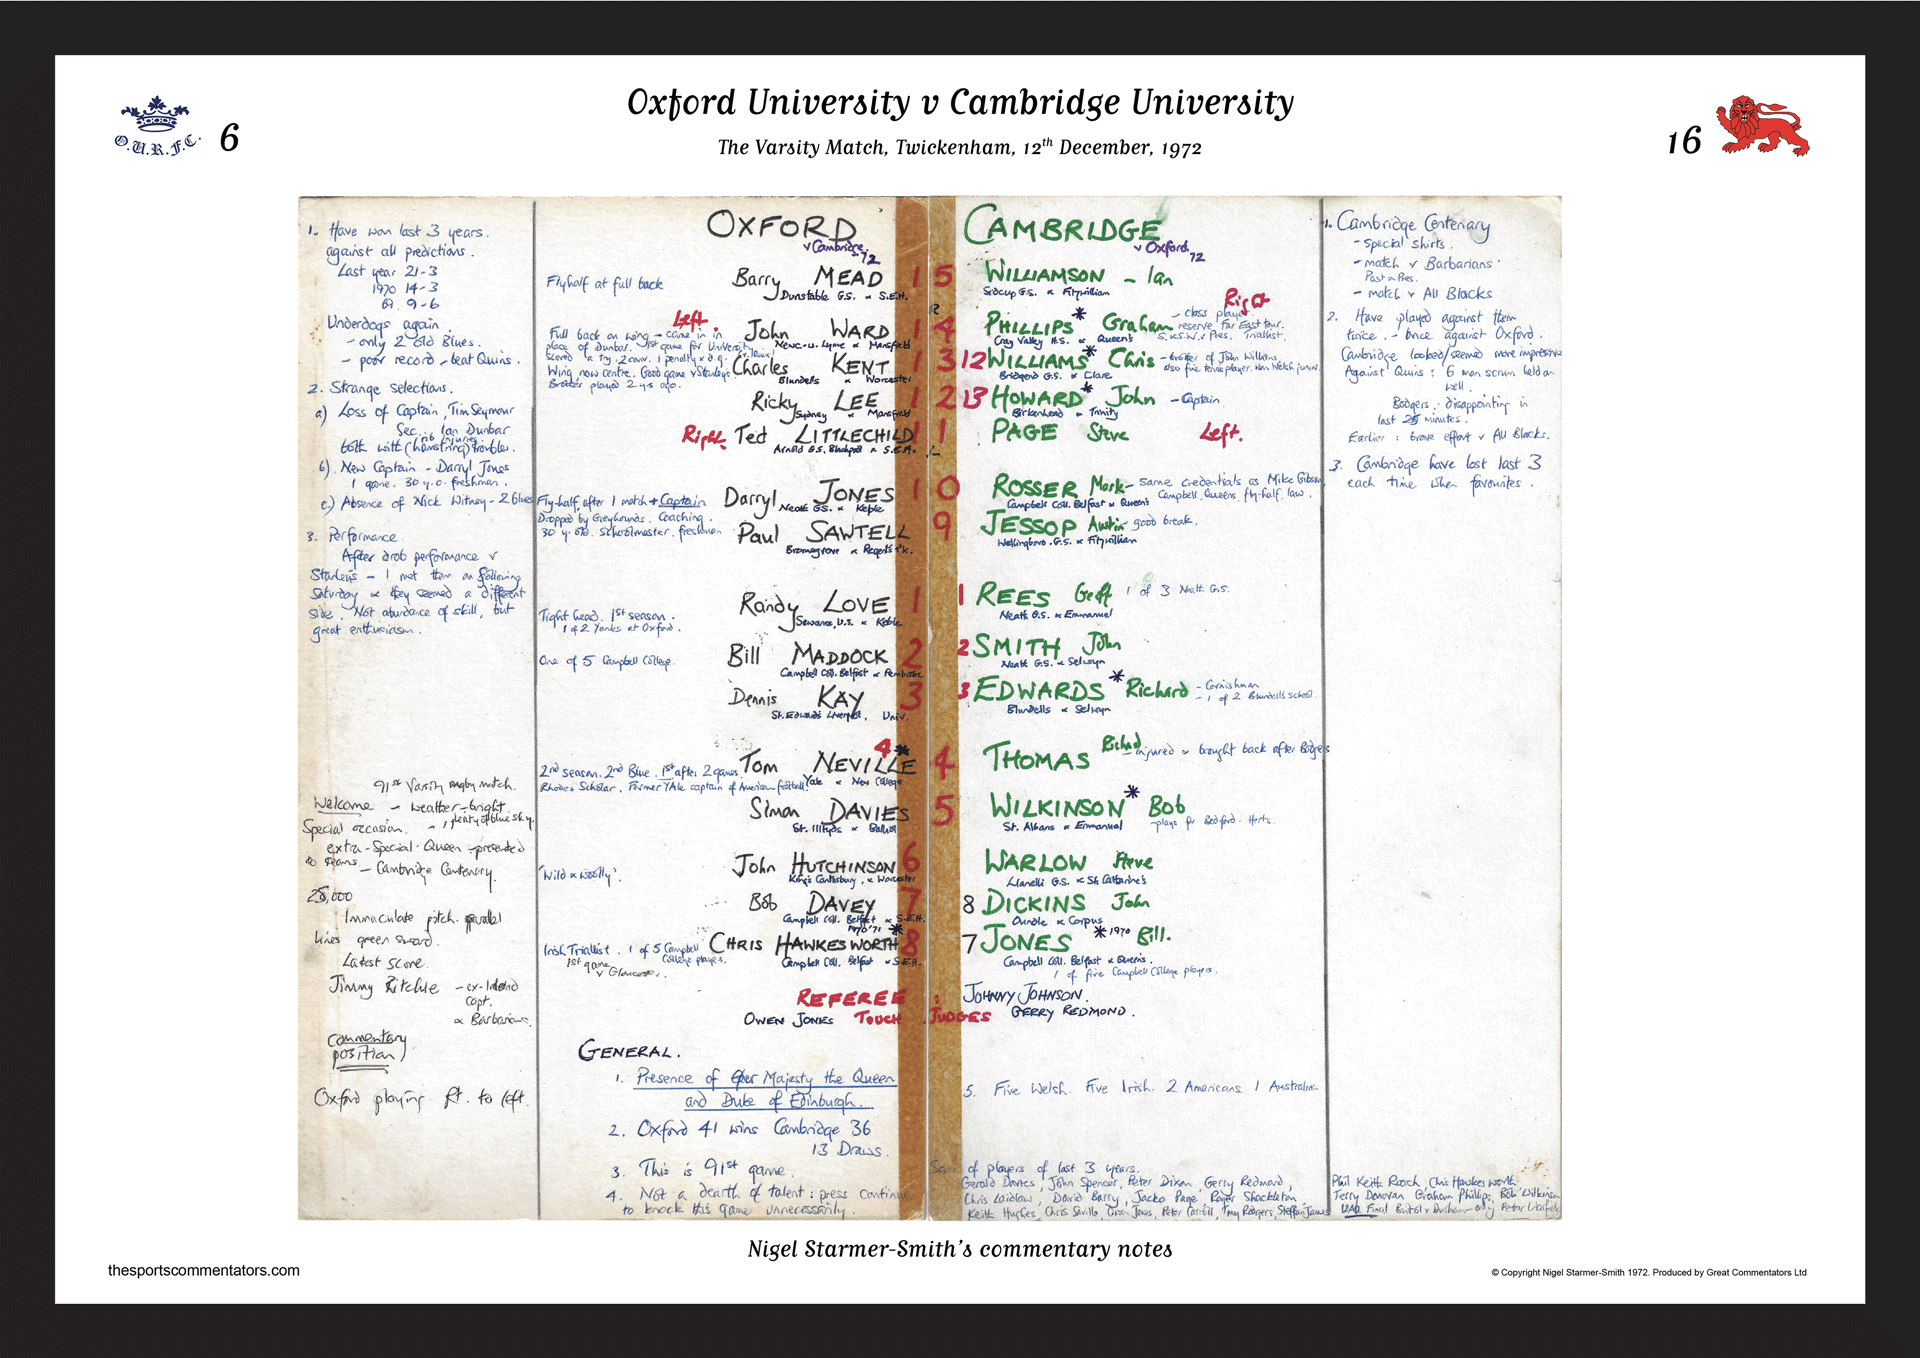 Oxford University v Cambridge University
The Varsity Match, Twickenham, 12th December, 1972
O.U.R.F.C.
6
16
1. Have won last 3 years.
against all predictions.
Last year 21-3
1970 14-3
69. 9-6
Underdogs again.
- only 2 old Blues.
- poor record - beat Quins.
2. Strange selections.
a) Loss of Captain, Tim Seymour
Sec. Ian Dunbar
both with (hamstring) trouble.
b) New Captain - Darryl Jones
1 game. 30 y.o. freshman.
c) Absence of Nick Witney - 2 blues
3. Performance.
After drab performance v
Stanleys - I met them on following
Saturday & they seemed a different
side. Not abundance of skill, but
great enthusiasm.
91st Varsity rugby match.
Welcome - weather-bright
- plenty of blue sky.
Special occasion.
extra-Special-Queen-presented
to teams
- Cambridge Centenary.
28,000
Immaculate pitch. parallel
lines green sward.
Latest score.
Jimmy Ritchie - ex-Ireland
capt.
& Barbarians.
commentary
position
Oxford playing Rt. to left.
OXFORD
v Cambridge
72
Flyhalf at full back
Barry MEAD 15
Dunstable G.S. & S.E.H.
Left.
Full back on wing - came in in
place of Dunbar. 1st game for University
scored a try, 2 conv. 1 penalty & d.g.
John WARD 14
Newc-u-Lyme & Mansfield
Wing now centre. Good game v Stanleys.
Brother played 2 ys ago.
Charles KENT 13
Blundells & Worcester
Ricky LEE 12
Sydney & Mansfield
Right. Ted LITTLECHILD 11
Arnold G.S. Blackpool & S.E.H.
Fly-half, after 1 match + Captain
Dropped by Greyhounds. Coaching.
30 y. old. Schoolmaster. freshman
Darryl JONES 10
Neath G.S. & Keble
Paul SAWTELL 9
Bromsgrove & Regent's Pk.
Tight head. 1st season.
1 of 2 Yanks at Oxford.
Randy LOVE 1
Sewanee, U.S. & Keble
One of 5 Campbell College.
Bill MADDOCK 2
Campbell Coll. Belfast & Pembroke
Dennis KAY 3
St. Edwards Liverpool, Univ.
2nd season. 2nd Blue. 1st after 2 games.
Rhodes Scholar. Former YAle captain of American football.
4 *
Tom NEVILLE 4
Yale & New College
Simon DAVIES 5
St. Illtyds & Balliol
'Wild & Woolly'.
John HUTCHINSON 6
King's Canterbury, & Worcester
Bob DAVEY 7
Campbell Coll. Belfast & S.E.H.
1970 '71 *
Irish Triallist. 1 of 5 Campbell
College players.
1st game
v Gloucester.
CHRIS HAWKESWORTH 8
Campbell Coll. Belfast & S.E.H.
REFEREE : JOHNNY JOHNSON.
OWEN JONES TOUCH JUDGES GERRY REDMOND.
GENERAL.
1. Presence of Her Majesty the Queen
and Duke of Edinburgh.
2. Oxford 41 wins Cambridge 36
13 Draws.
3. This is 91st game.
4. Not a dearth of talent: press continue
to knock this game unnecessarily.
CAMBRIDGE
v Oxford
72
WILLIAMSON - Ian
Sidcup G.S. & Fitzwilliam
Right
PHILLIPS * Graham
- class player
reserve Far East tour.
Cray Valley H.S. & Queen's
12 WILLIAMS * Chris
- brother of John Williams
also fine tennis player. Won Welsh junior.
Bridgend G.S. & Clare
13 HOWARD * John - Captain
Birkenhead & Trinity
PAGE Steve Left.
ROSSER Mark - same credentials as Mike Gibson
Campbell, Queens. fly-half. law.
Campbell Coll. Belfast & Queen's
JESSOP Austin - good break.
Wellingboro. G.S. & Fitzwilliam
1 REES Geoff 1 of 3 Neath G.S.
Neath G.S. & Emmanuel
2 SMITH John
Neath G.S. & Selwyn
3 EDWARDS * Richard - Cornishman
- 1 of 2 Blundells school.
Blundells & Selwyn
THOMAS Richard - injured & brought back after Bodgers
WILKINSON * Bob
- plays for Bedford. Herts.
St. Albans & Emmanuel
WARLOW Steve
Llanelli G.S. & St. Catharine's
8 DICKINS John
Oundle & Corpus
7 JONES * 1970 Bill.
Campbell Coll. Belfast & Queens.
1 of five Campbell College players.
5. Five Welsh. Five Irish. 2 Americans. 1 Australian
of players of last 3 years.
Gerald Davies, John Spencer, Peter Dixon, Gerry Redmond,
Chris Laidlaw, David Barry, Jacko Page, Roger Shackleton,
Keith Hughes, Chris Saville, Peter Carroll, Steffan Jones
1. Cambridge Centenary
- Special shirts.
- match v Barbarians
Past & Pres.
- match v All Blacks
2. Have played against them
twice. - once against Oxford.
Cambridge looked/seemed more impressive
Against Quins: 6 man scrum held on
well.
Bodgers: disappointing in
last 25 minutes.
Earlier: brave effort v All Blacks.
3. Cambridge have lost last 3
each time when favourites.
Phil Keith Roach, Chris Hawkesworth
Terry Donovan, Graham Phillips, Bob Wilkinson
UAU Final
Nigel Starmer-Smith's commentary notes
thesportscommentators.com
© Copyright Nigel Starmer-Smith 1972. Produced by Great Commentators Ltd